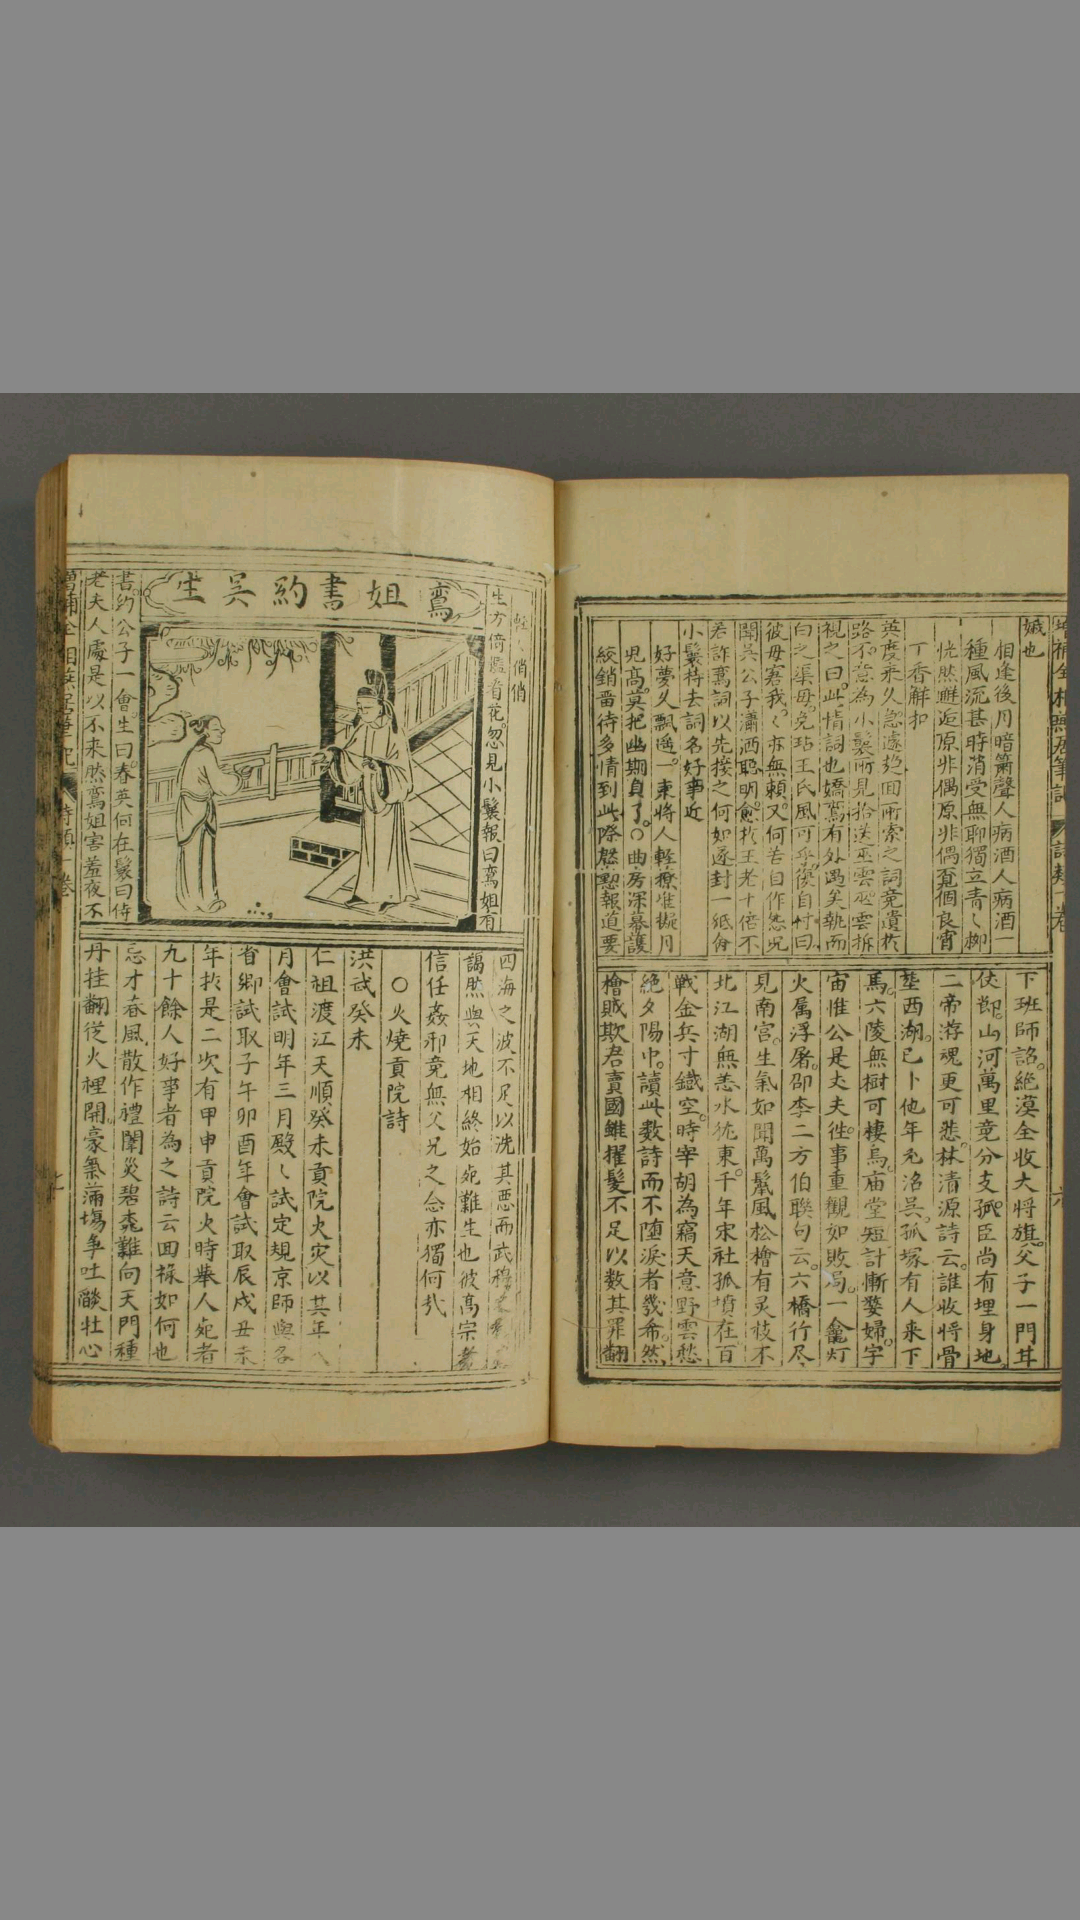 嫉也
相逢後月暗簫聲人病酒人病酒一
種風流甚時消受無聊獨立青〻柳
恍然邂逅原非偶原非偶寬個良宵
丁香解扣
英度來久忽遽趋回所索之詞竟遺於
路不意為小鬟所見拾送巫雲巫雲拆
視之曰此情詞也嬌鸾有外遇矣執而
白之渠母免玷王氏風可乎復自忖曰
彼毋害我〻亦無賴又何苦自作怨兄
聞吳公子瀟洒聪明愈於王老十倍不
若詐鸞詞以先接之何如遂封一紙俏
小鬟持去詞名好事近
好夢久飄遥一束將人輕撩准擬月
児高莫把幽期負了○曲房深幕護
絞銷畨待多情到此際慇懃報道要
下班師詔。絶漠全收大將旗。父子一門甘
伏節。山河萬里竟分支。孤臣尚有埋身地。
二帝游魂更可悲。林清源詩云。誰收將骨
塟西湖。已卜他年兆洛吳。孤塚有人来下
馬。六陵無樹可棲烏。庙堂短計慚嫠婦。宇
宙惟公是丈夫。徃事重觀如敗局。一龕灯
火属浮屠。邵李二方伯聯句云。六橋行尽
見南宫。生氣如聞萬鬣風。松檜有灵枝不
北。江湖無恙水犹東。千年宋社孤墳在。百
戰金兵寸鐵空。時宰胡為竊天意。野雲愁
絶夕陽中。讀此数詩而不堕淚者幾希。然
檜賊欺君賣國雖擢髮不足以数其罪翻
輕〻俏俏
生方倚檻看花。忽見小鬟報曰鸾姐有
鸞姐書約吳生
書約公子一會。生曰。春英何在鬟曰侍
老夫人處是以不来然鸾姐害羞夜不
四海之波不足以洗其恶而武穆
謁然與天地相終始宛難生也彼髙宗者
信任姦邪竟無父兄之念亦獨何㢤
○火燒貢院詩
洪武癸未
仁祖渡江天順癸未貢院火灾以其年八
月會試明年三月殿〻試定規京師與各
省鄉試取子午卯酉年會試取辰戍丑未
年於是二次有甲申貢院火時舉人宛者
九十餘人好事者為之詩云囬祿如何也
忘才春風散作禮闈災碧桃難向天門種
丹挂翻従火裡開。豪氣滿塲争吐燄壮心